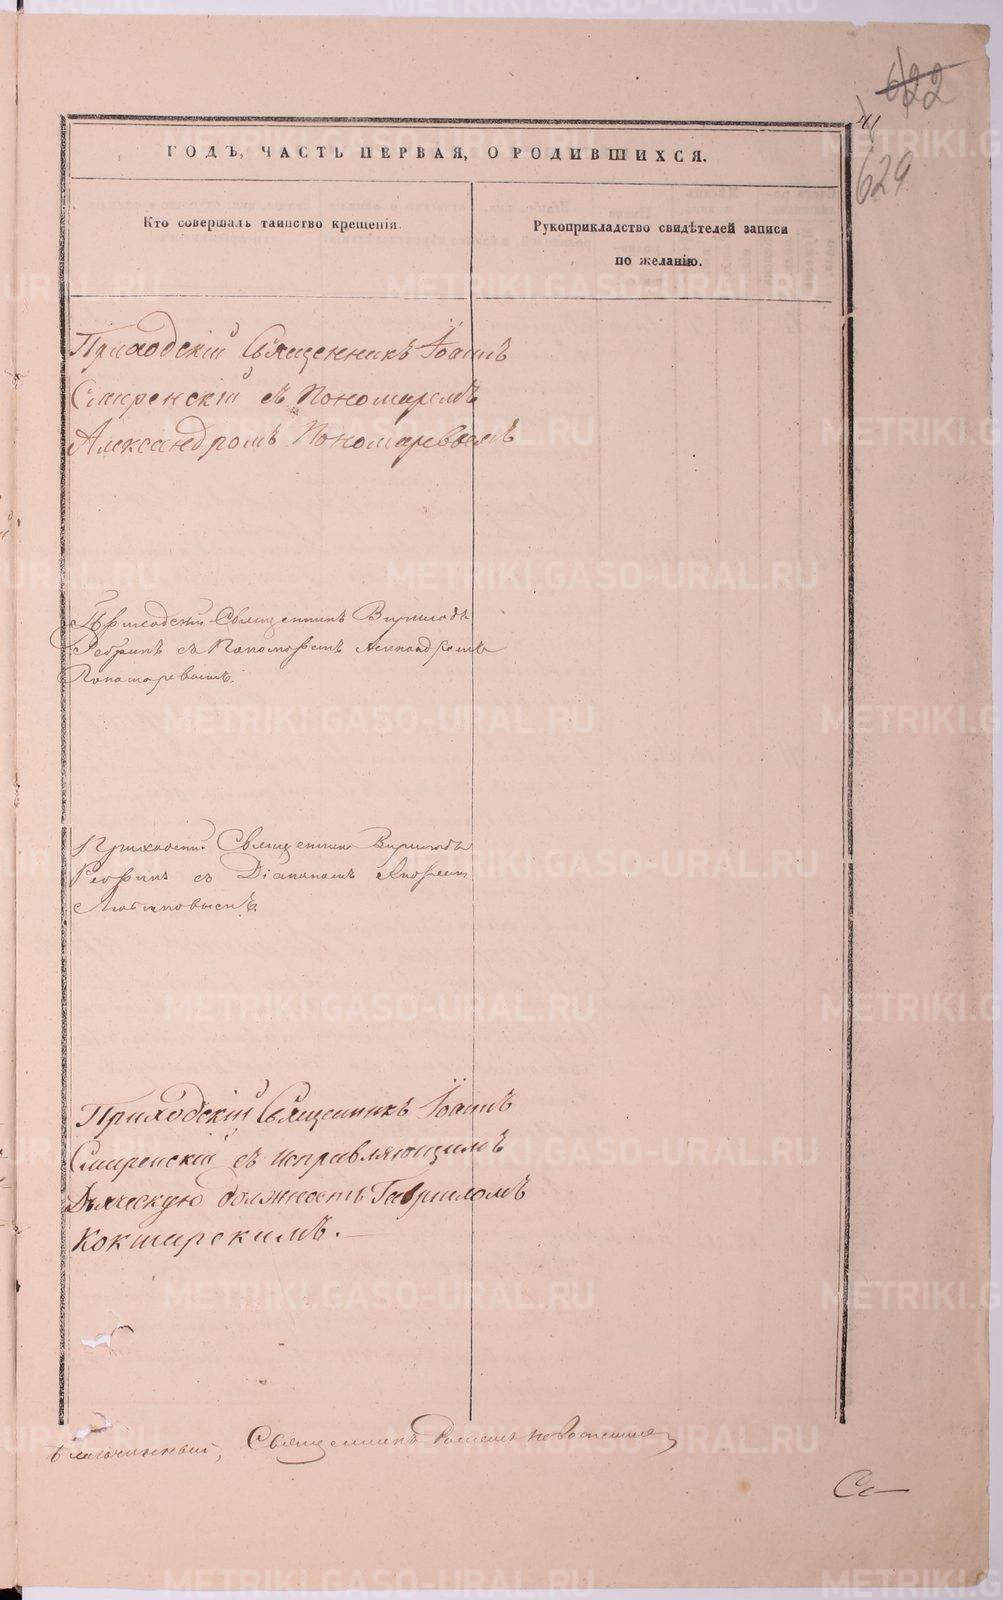 622
41
629
ГОДЪ, ЧАСТЬ ПЕРВАЯ, О РОДИВШИХСЯ.
Кто совершалъ таинство крещенія.
Рукоприкладство свидѣтелей записи
по желанію.
Приходскій Священникъ Іоаннъ
Смиренскій съ Пономаремъ
Александромъ Пономаревымъ
Приходскій Священникъ
съ Пономаремъ Александромъ
Пономаревымъ.
Приходскій Священникъ
съ Діакономъ Андреемъ
Приходскій Священникъ Іоаннъ
Смиренскій съ исправляющимъ
Дьяческую должность Гавриломъ
Кокшарскимъ.
Благочинный, Священникъ
METRIKI.GASO-URAL.RU